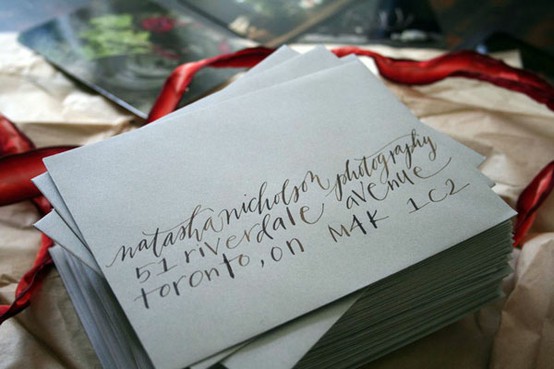 natasha nicholson photography
51 riverdale avenue
toronto, on M4K 1C2